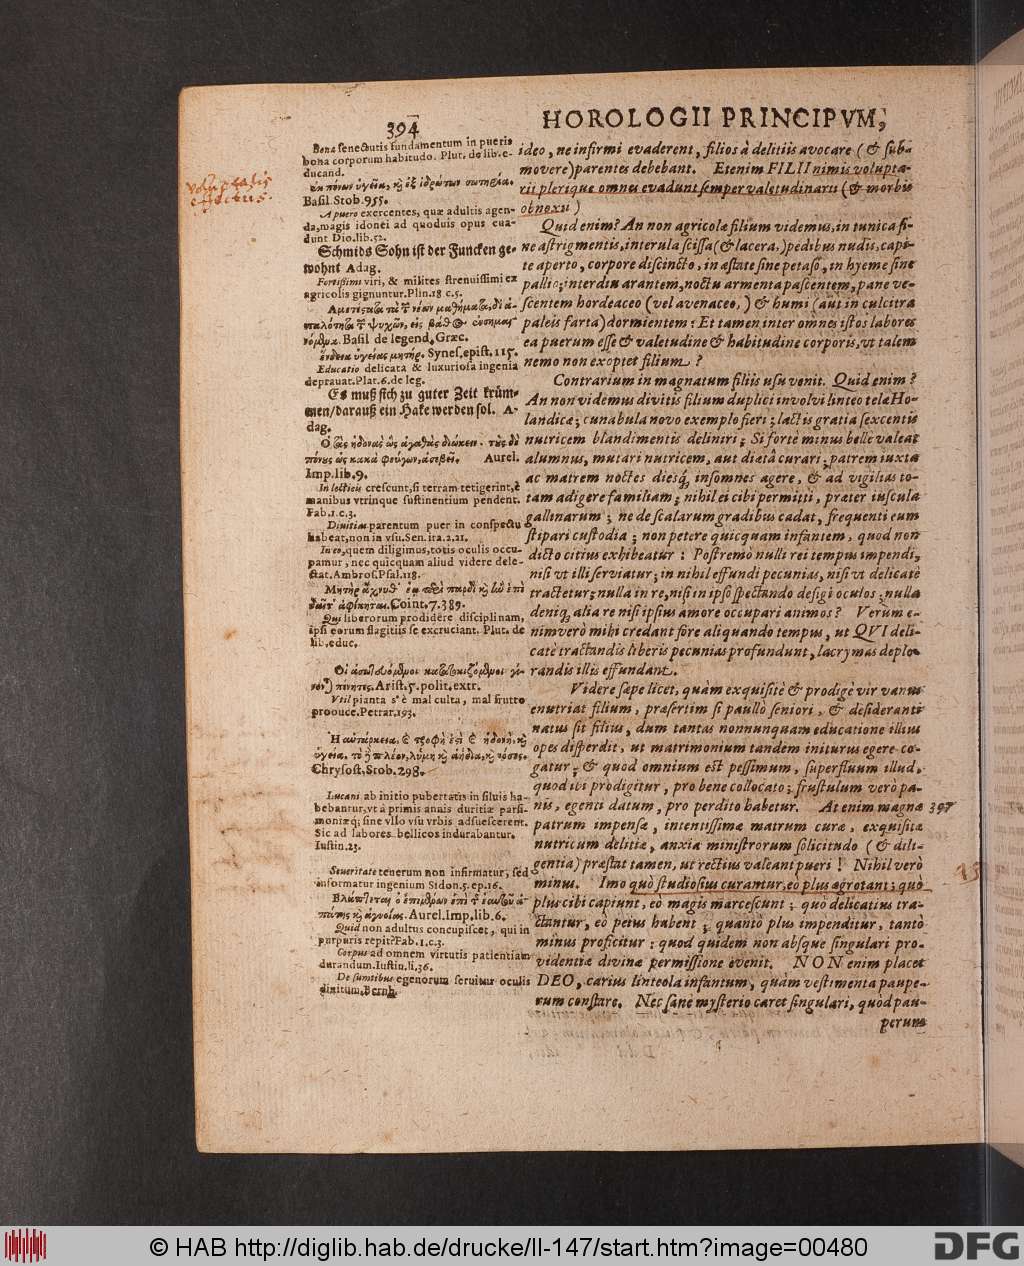 394
HOROLOGII PRINCIPVM,
Bona senectutis fundamentum in pueris
bona corporum habitudo. Plut. de lib. e-
ducand.
Basil. Stob. 955.
A puero exercentes, quæ adultis agen-
da, magis idonei ad quoduis opus eua-
dunt Dio. lib. 52.
Schmids Sohn ist der Funcken ge-
wohnt Adag.
Fortissimi viri, & milites strenuissimi ex
agricolis gignuntur. Plin. 18 c. 5.
Basil de legend. Græc.
Synes. epist. 115.
Educatio delicata & luxuriosa ingenia
deprauat. Plat. 6. de leg.
Es muß sich zu guter Zeit krüm-
men / darauß ein Hake werden sol. A-
dag.
Aurel.
Imp. lib. 9.
In lecticis crescunt, si terram tetigerint, è
manibus vtrinque sustinentium pendent.
Fab. 1. c. 3.
Diuitias parentum puer in conspectu
habeat, non in vsu. Sen. ira. 2. 21.
In eo, quem diligimus, totis oculis occu-
pamur, nec quicquam aliud videre dele-
ctat. Ambros. Psal. 118.
Coint. 7. 389.
Qui liberorum prodidêre disciplinam,
ipsi eorum flagitiis se excruciant. Plut. de
lib. educ.
Arist. 5. polit. extr.
Vtil pianta s' è mal culta, mal frutto
proouce. Petrar. 193.
Chrysost. Stob. 298.
Lucani ab initio pubertatis in siluis ha-
bebantur, vt à primis annis duritiæ parsi-
moniæq; sine vllo vsu vrbis adsuescerent.
Sic ad labores bellicos indurabantur.
Iustin. 23.
Seueritate tenerum non infirmatur, sed
informatur ingenium Sidon. 5. ep. 16.
Aurel. Imp. lib. 6.
Quid non adultus concupiscet, qui in
purpuris repit? Fab. 1. c. 3.
Corpus ad omnem virtutis patientiam
durandum. Iustin. li. 36.
De sumtibus egenorum seruitur oculis
diuitum. Bernh.
ideo, ne infirmi evaderent, filios à delitiis avocare (& suba
movere) parentes debebant. Etenim FILII nimis volupta-
rii plerique omnes evadunt semper valetudinarii (& morbis
obnoxii)
Quid enim? An non agricolæ filium videmus, in tunica si-
ne astrigmentis, interula scissa (& lacera,) pedibus nudis, capi-
te aperto, corpore discincto, in æstate sine petaso, in hyeme sine
pallio; interdiu arantem, noctu armenta pascentem, pane ve-
scentem hordeaceo (vel avenaceo,) & humi (aut in culcitra
paleis farta) dormientem: Et tamen inter omnes istos labores
ea puerum esse & valetudine & habitudine corporis, vt talem
nemo non exoptet filium?
Contrarium in magnatum filiis usu venit. Quid enim?
An non videmus divitis filium duplici involvi linteo telæ Ho-
landicæ; cunabula novo exemplo fieri; lactis gratia sexcentis
nutricem blandimentis deliniri; Si fortè minus bellè valeat
alumnus, mutari nutricem, aut diætâ curari; patrem iuxta
ac matrem noctes diesq; insomnes agere, & ad vigilias to-
tam adigere familiam; nihil ei cibi permitti, præter iuscula
gallinarum; ne de scalarum gradibus cadat, frequenti eum
stipari custodia; non petere quicquam infantem, quod non
dicto citius exhibeatur: Postremò nulli rei tempus impendi,
nisi vt illi serviatur; in nihil effundi pecunias, nisi vt delicatè
tractetur; nulla in re, nisi in ipso spectando defigi oculos; nulla
deniq; alia re nisi ipsius amore occupari animos? Verùm e-
nimverò mihi credant fore aliquando tempus, ut QVI deli-
catè tractandis liberis pecunias profundunt, lacrymas deplo-
randis illis effundant.
Videre sæpe licet, quàm exquisitè & prodigè vir vanus
enutriat filium, præsertim si paullo seniori, & desideranti
natus sit filius, dum tantas nonnunquam educatione illius
opes disperdit, ut matrimonium tandem initurus egere co-
gatur; & quod omnium est pessimum, superfluum illud,
quod ibi prodigitur, pro bene collocato; frustulum verò pa-
nis, egenti datum, pro perdito habetur. At enim magnæ
397
patrum impensæ, intentissimæ matrum curæ, exquisitæ
nutricum delitiæ, anxia ministrorum solicitudo (& dili-
gentia) præstat tamen, ut rectius valeant pueri! Nihil verò
minus. Imo quò studiosius curantur, eò plus ægrotant; quò
plus cibi capiunt, eò magis marcescunt; quò delicatius tra-
ctantur, eò peius habent; quantò plus impenditur, tantò
minus proficitur: quod quidem non absque singulari pro-
videntiæ divinæ permissione evenit. NON enim placet
DEO, carius linteola infantum, quàm vestimenta paupe-
rum constare. Nec sanè mysterio caret singulari, quòd pau-
perum
© HAB http://diglib.hab.de/drucke/ll-147/start.htm?image=00480
DFG